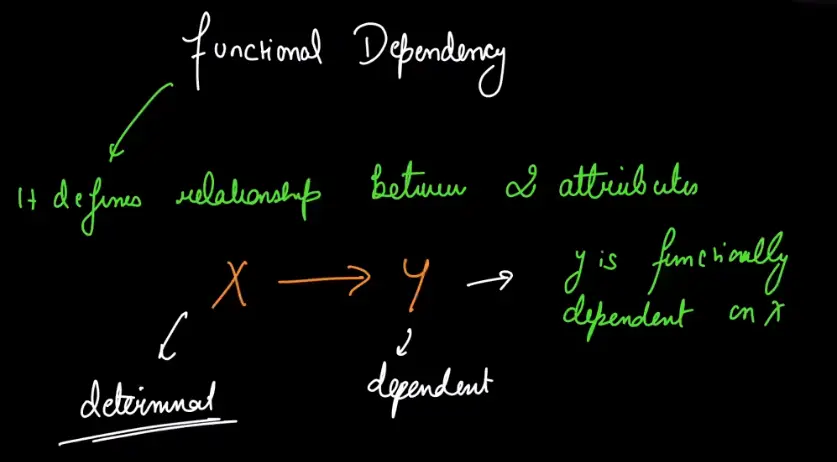 Functional Dependency
It defines relationship between 2 attributes
X → Y → y is functionally
dependent on X
determinat
dependent